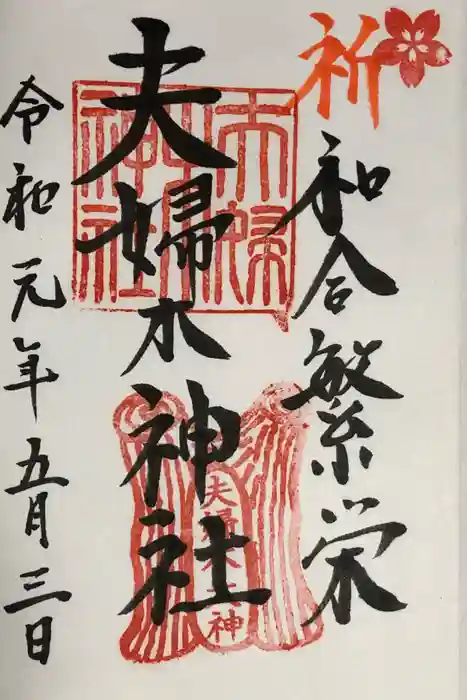 祈
和合繁栄
夫婦木神社
夫婦木神社
夫婦木神
令和元年五月三日